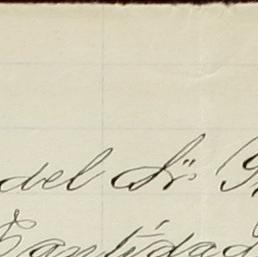 del Sr.
Cantidad